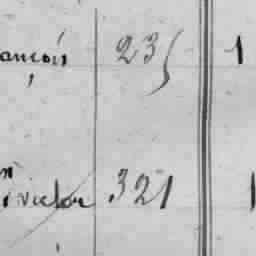 ançois 235 1
n
victor 321 1